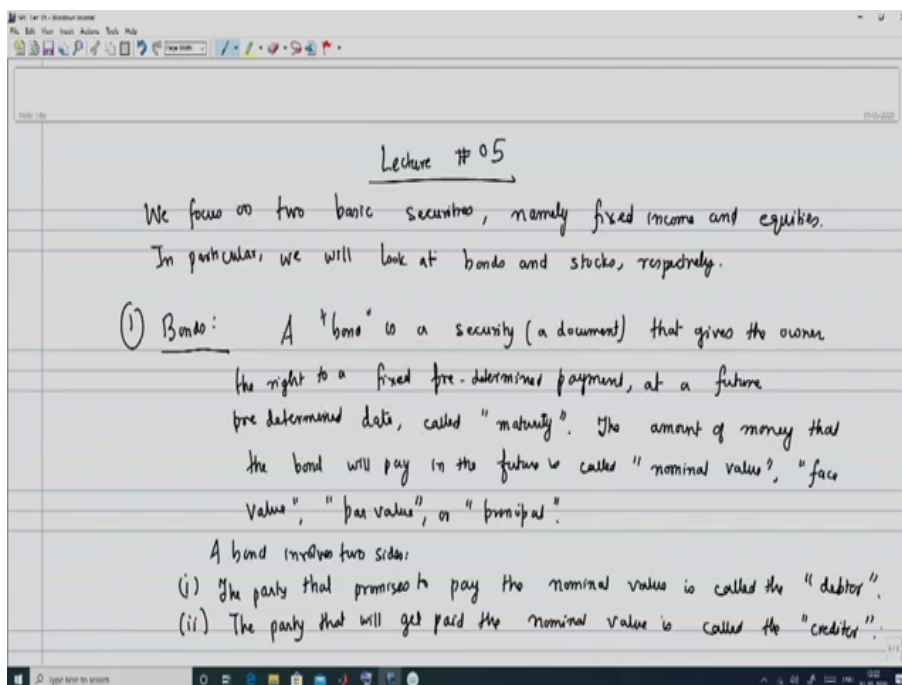 File Edit View Insert Actions Tools Help
Lecture # 05
We focus on two basic securities, namely fixed income and equities.
In particular, we will look at bonds and stocks, respectively.
① Bonds: A "bond" is a security (a document) that gives the owner
the right to a fixed pre-determined payment, at a future
pre determined date, called "maturity". The amount of money that
the bond will pay in the future is called "nominal value", "face
value", "par value", or "principal".
A bond involves two sides:
(i) The party that promises to pay the nominal value is called the "debtor".
(ii) The party that will get paid the nominal value is called the "creditor".
Type here to search